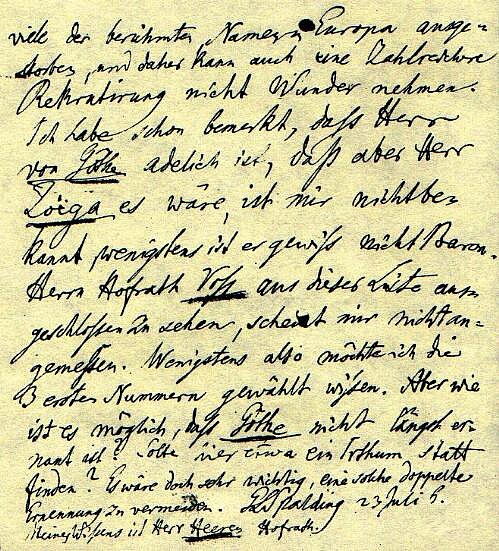 viele der berühmten Namen in Europa ausge-
storben, und daher kann auch eine Zahlreichere
Rekrutirung nicht Wunder nehmen.
Ich habe schon bemerkt, daß Herr
von Göthe adelich ist, daß aber Herr
Zoëga es wäre, ist mir nicht be-
kannt, wenigstens ist er gewiß nicht Baron.
Herrn Hofrath Voß aus dieser Liste aus-
geschloßen zu sehen, scheint mir nicht an-
gemeßen. Wenigstens also möchte ich die
3 ersten Nummern gewählt wißen. Aber wie
ist es möglich, daß Göthe nicht längst er-
nant ist? Solte hier etwa ein Irthum statt
finden? Es wäre doch sehr wichtig, eine solche doppelte
Ernennung zu vermeiden. Spalding 23 Juli 6.
Meines Wißens ist Herr Heeren Hofrath.